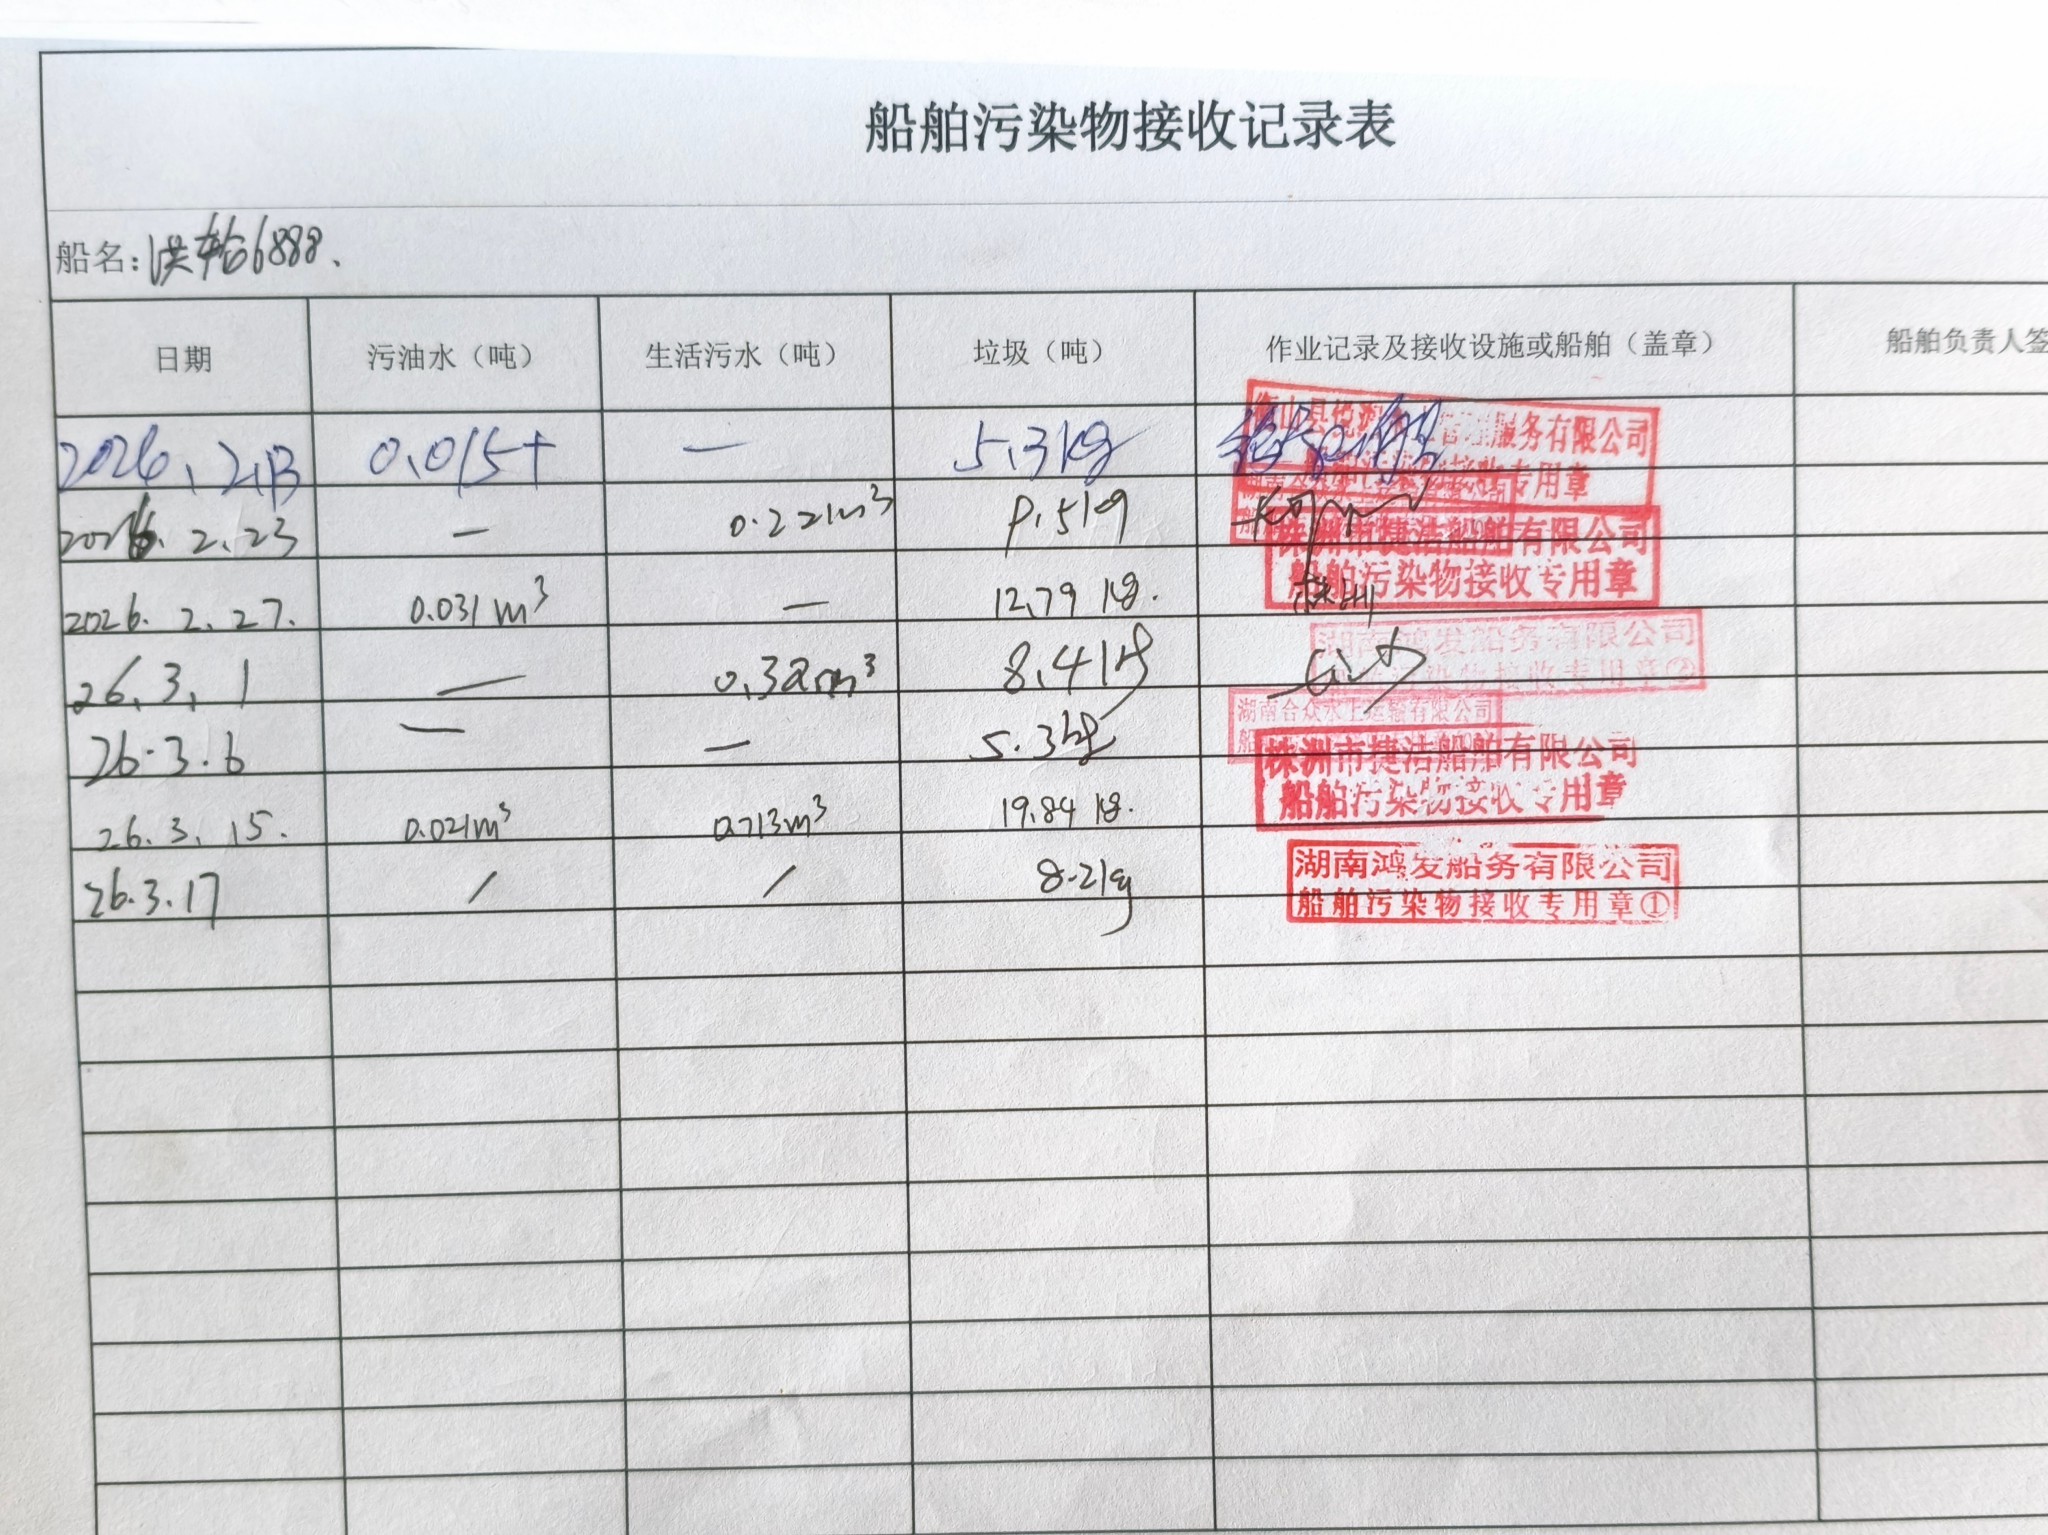 船舶污染物接收记录表
船名：洪轮6888.
日期 污油水（吨） 生活污水（吨） 垃圾（吨） 作业记录及接收设施或船舶（盖章） 船舶负责人签
0.015t — 5.3kg 服务有限公司
专用章
2026.2.23 — 0.221m³ 9.5kg
株洲市捷洁船舶有限公司
船舶污染物接收专用章
2026.2.27. 0.031m³ — 12.79kg. 株洲
湖南鸿发船务有限公司
污染物接收专用章②
26.3.1 — m³ 8.4kg
湖南合众水上运输有限公司
26.3.6 — — 5.3kg
株洲市捷洁船舶有限公司
船舶污染物接收专用章
26.3.15. 0.021m³ 0.713m³ 19.84kg.
湖南鸿发船务有限公司
船舶污染物接收专用章①
26.3.17 / / 8.2kg